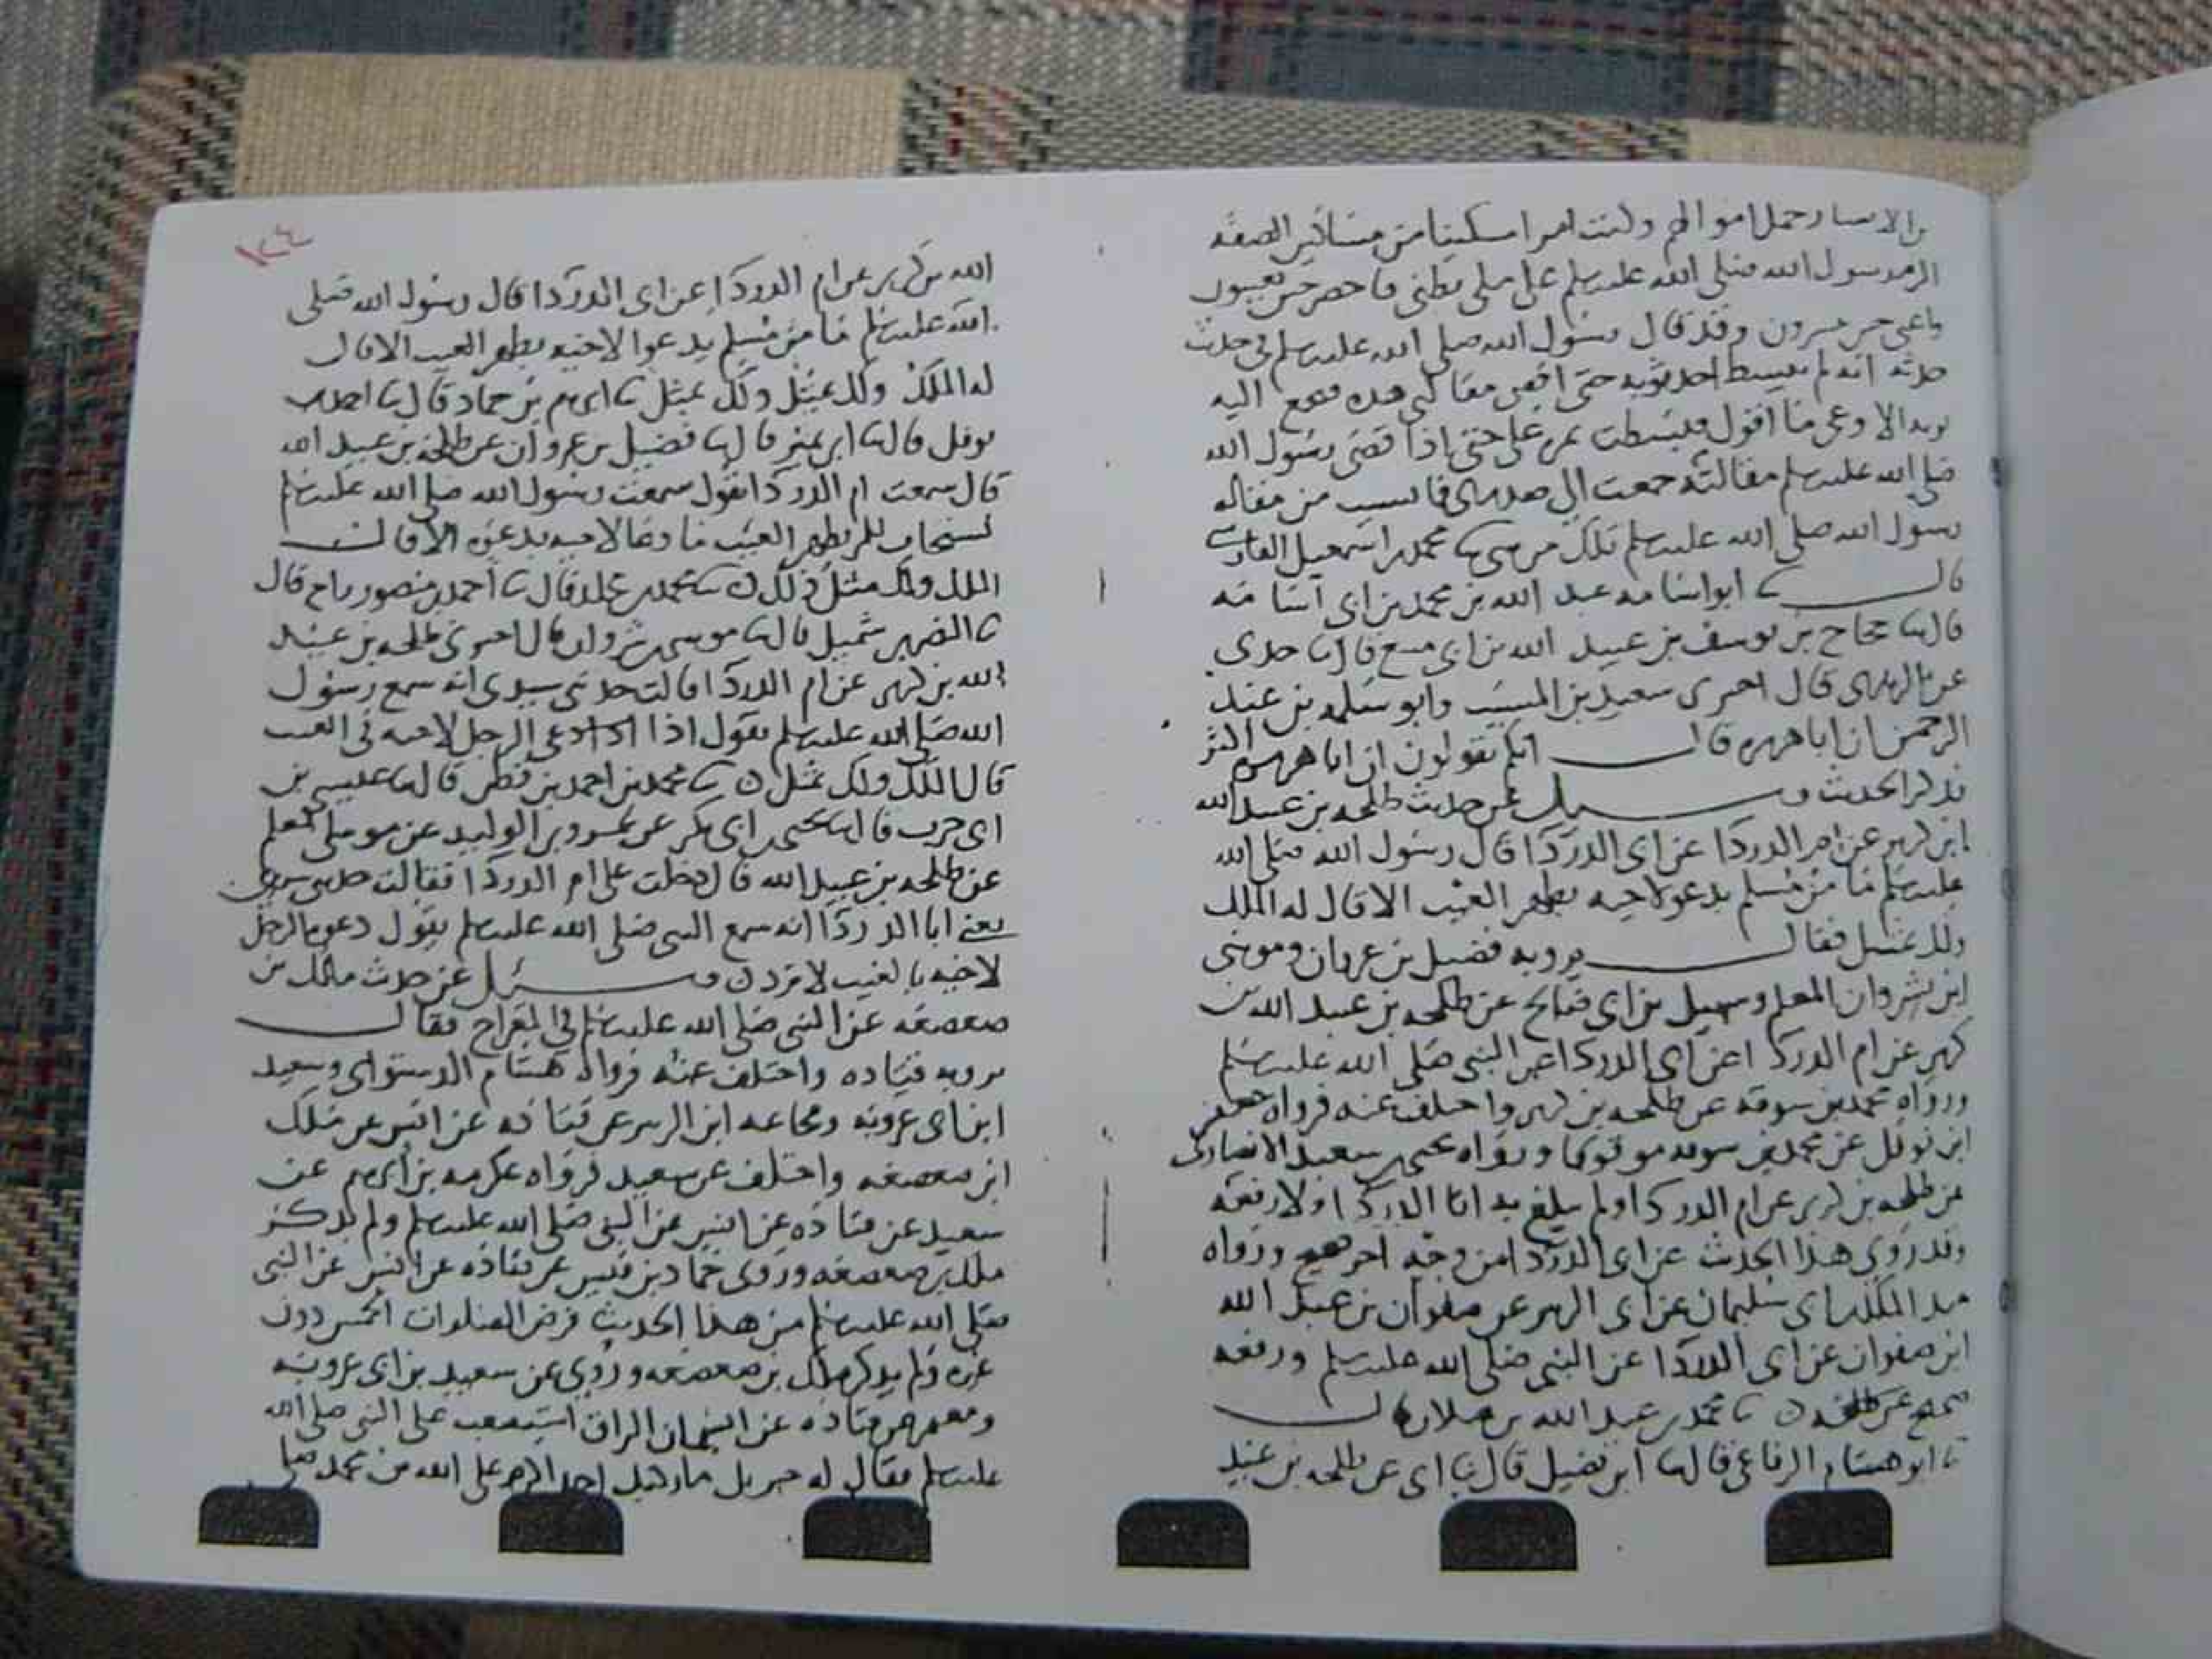 من الانصار عمل اموالهم وكنت امرا مسكينا من مساكين الصفه
الزم رسول الله صلى الله عليه وسلم على ملى بطنى فاحضر حين يغيبون
واعى حين ينسون وقد قال رسول الله صلى الله عليه وسلم فى حديث
حدثه انه لم يبسط احد ثوبه حتى اقضى مقالتى هذه فيجمع اليه
ثوبه الا وعى ما اقول فبسطت نمره على حتى اذا قضى رسول الله
صلى الله عليه وسلم مقالته جمعتها الى صدرى فما نسيت من مقاله
رسول الله صلى الله عليه وسلم تلك من شى ثنا محمد بن اسمعيل الفارسي
قال ثنا ابو اسامه عبد الله بن محمد بن ابى اسامه
قال ثنا حجاج بن يوسف بن عبيد الله بن ابى منيع قال ثنا جدى
عن الزهرى قال اخبرنى سعيد بن المسيب وابو سلمه بن عبد
الرحمن ان ابا هريره قال انكم تقولون ان ابا هريره اكثر
فذكر الحديث وسيل عن حديث طلحه بن عبيد الله
ابن كريز عن ام الدردا عن ابى الدردا قال رسول الله صلى الله
عليه وسلم ما من مسلم يدعو لاخيه بظهر الغيب الا قال له الملك
ولك بمثل فقال يرويه فضيل بن غزوان وموسى
ابن ثروان المعلم وسهيل بن ابى صالح عن طلحه بن عبيد الله بن
كريز عن ام الدردا عن ابى الدردا عن النبى صلى الله عليه وسلم
ورواه محمد بن سوقه عن طلحه بن كريز واختلف عنه فرواه جعفر
ابن نوفل عن محمد بن سوقه موقوفا ورواه يحيى بن سعيد الانصارى
عن طلحه بن كريز عن ام الدردا ولم يبلغ به ابا الدردا ولا رفعه
وقد روى هذا الحديث عن ابى الدردا من وجه اخر صحيح ورواه
عبد الملك بن ابى سليمان عن ابى الزبير عن صفوان بن عبد الله
ابن صفوان عن ابى الدردا عن النبى صلى الله عليه وسلم ورفعه
صحيح عن طلحه ثنا محمد بن عبد الله بن قال
ثنا ابو هشام الرفاعى قال ثنا ابن فضيل قال ثنا ابى عن طلحه بن عبيد
١٢٤
الله بن كريز عن ام الدردا عن ابى الدردا قال رسول الله صلى
الله عليه وسلم ما من مسلم يدعوا لاخيه بظهر الغيب الا قال
له الملك ولك بمثل ولك بمثل ثنا ابرهيم بن حماد قال ثنا احمد بن
نوفل قال ثنا ابن نمير قال ثنا فضيل بن غزوان عن طلحه بن عبيد الله
قال سمعت ام الدردا تقول سمعت رسول الله صلى الله عليه وسلم
يستجاب للمرء بظهر الغيب ما دعا لاخيه بدعوه الا قالت
الملك ولك مثل ذلك ثنا محمد بن مخلد قال ثنا احمد بن منصور زاج قال
ثنا النضر بن شميل قال ثنا موسى بن ثروان قال اخبرنى طلحه بن عبيد
الله بن كريز عن ام الدردا قالت حدثنى سيدى انه سمع رسول
الله صلى الله عليه وسلم يقول اذا دعى الرجل لاخيه فى الغيب
قال الملك ولك بمثل ثنا محمد بن احمد بن قطن قال ثنا عيسى بن
ابى حرب قال ثنا يحيى بن ابى بكر عن الوليد عن موسى المعلم
عن طلحه بن عبيد الله قال دخلت على ام الدردا فقالت حدثنى سيدى
يعنى ابا الدردا انه سمع النبى صلى الله عليه وسلم يقول دعوه الرجل
لاخيه بالغيب لا ترد وسئل عن حديث مالك بن
صعصعه عن النبى صلى الله عليه وسلم فى المعراج فقال
يرويه قتاده واختلف عنه فرواه هشام الدستواى وسعيد
ابن ابى عروبه ومجاعه ابن الزبير عن قتاده عن انس عن ملك
ابن صعصعه واختلف عن سعيد فرواه عكرمه بن ابرهيم عن
سعيد عن قتاده عن انس عن النبى صلى الله عليه وسلم ولم يذكر
ملك بن صعصعه وروى حماد بن قيس عن قتاده عن انس عن النبى
صلى الله عليه وسلم من هذا الحديث فرض الصلوات الخمس دون
غيره ولم يذكر ملك بن صعصعه وروى عن سعيد بن ابى عروبه
ومعمر عن قتاده عن انس ان البراق استصعب على النبى صلى الله
عليه وسلم فقال له جبريل ما ركبك احد اكرم على الله من محمد صلى